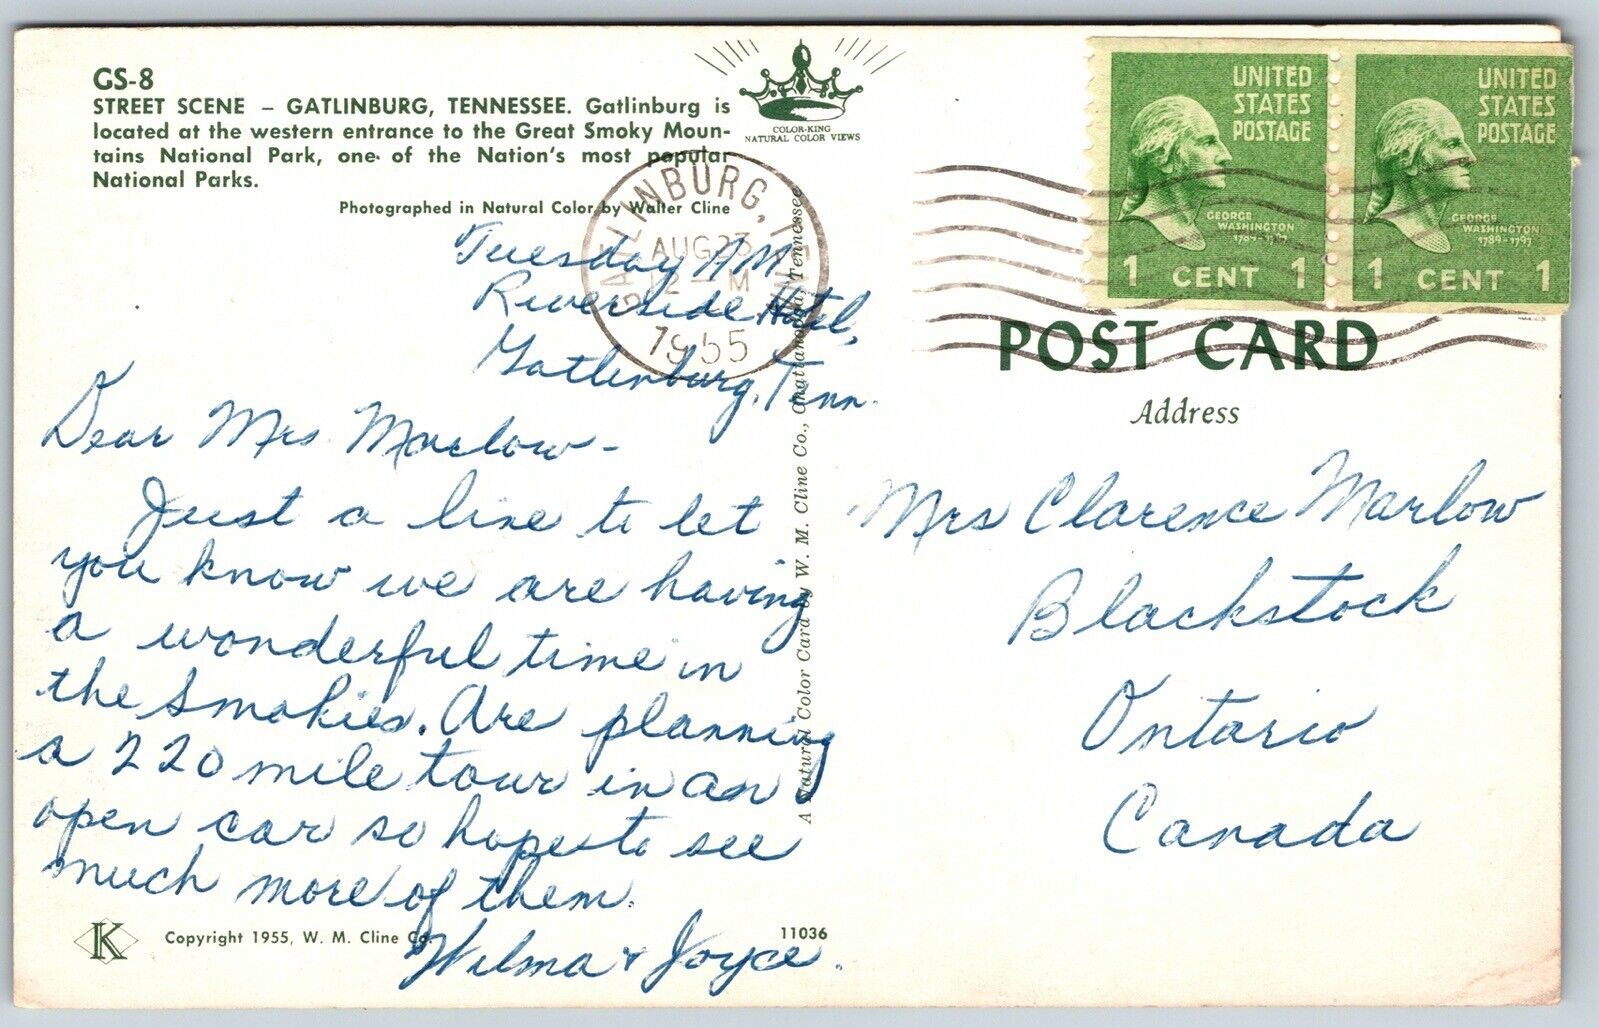 GS-8
STREET SCENE – GATLINBURG, TENNESSEE. Gatlinburg is
located at the western entrance to the Great Smoky Moun-
tains National Park, one of the Nation's most popular
National Parks.
Photographed in Natural Color by Walter Cline
COLOR-KING
NATURAL COLOR VIEWS
GATLINBURG, TENN.
AUG 23
12 – M
1955
UNITED
STATES
POSTAGE
GEORGE
WASHINGTON
1789-1797
1 CENT 1
UNITED
STATES
POSTAGE
GEORGE
WASHINGTON
1789-1797
1 CENT 1
POST CARD
Address
Tuesday AM
Riverside Hotel,
Gatlinburg, Tenn.
Dear Mrs. Marlow –
Just a line to let
you know we are having
a wonderful time in
the Smokies. Are planning
a 220 mile tour in an
open car so hope to see
much more of them.
Wilma & Joyce.
Mrs Clarence Marlow
Blackstock
Ontario
Canada
A Natural Color Card by W. M. Cline Co., Chattanooga, Tennessee
K
Copyright 1955, W. M. Cline Co.
11036